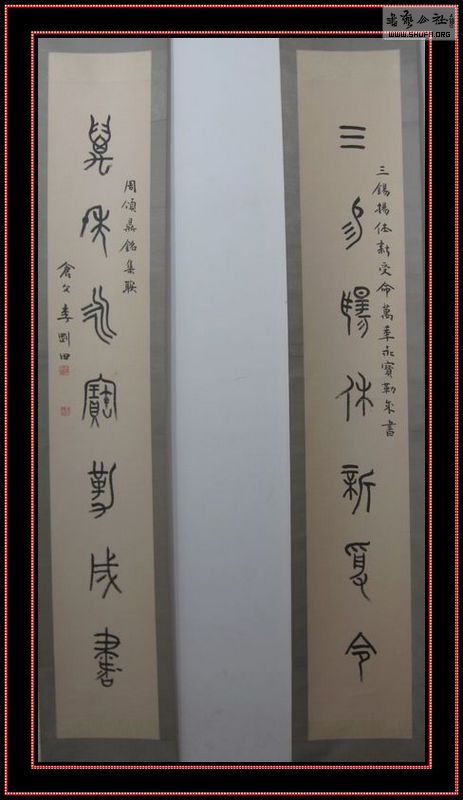 書藝公社
WWW.SHUFA.ORG
三錫揚休新受命萬年永寶勒成書
三易揚休新受令
周頌鼎銘集聯
萬年永寶勒成書
倉父李剛田